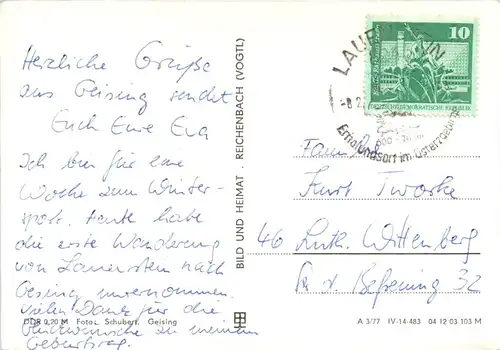 Herzliche Grüße
aus Geising sendet
Euch Eure Eva
Ich bin für eine
Woche zum Winter-
sport. Heute habe
die erste Wanderung
von Lauenstein nach
Geising unternommen.
Vielen Dank für die
Glückwünsche zu meinem
Geburtstag.
DDR 0,20 M Foto: Schubert, Geising
BILD UND HEIMAT REICHENBACH (VOGTL)
10
DEUTSCHE DEMOKRATISCHE REPUBLIK
Erholungsort im Osterzgebirge
Kurt
46 Luth. Wittenberg
Str. d. Befreiung 32
A 3/77 IV-14-483 04 12 03 103 M